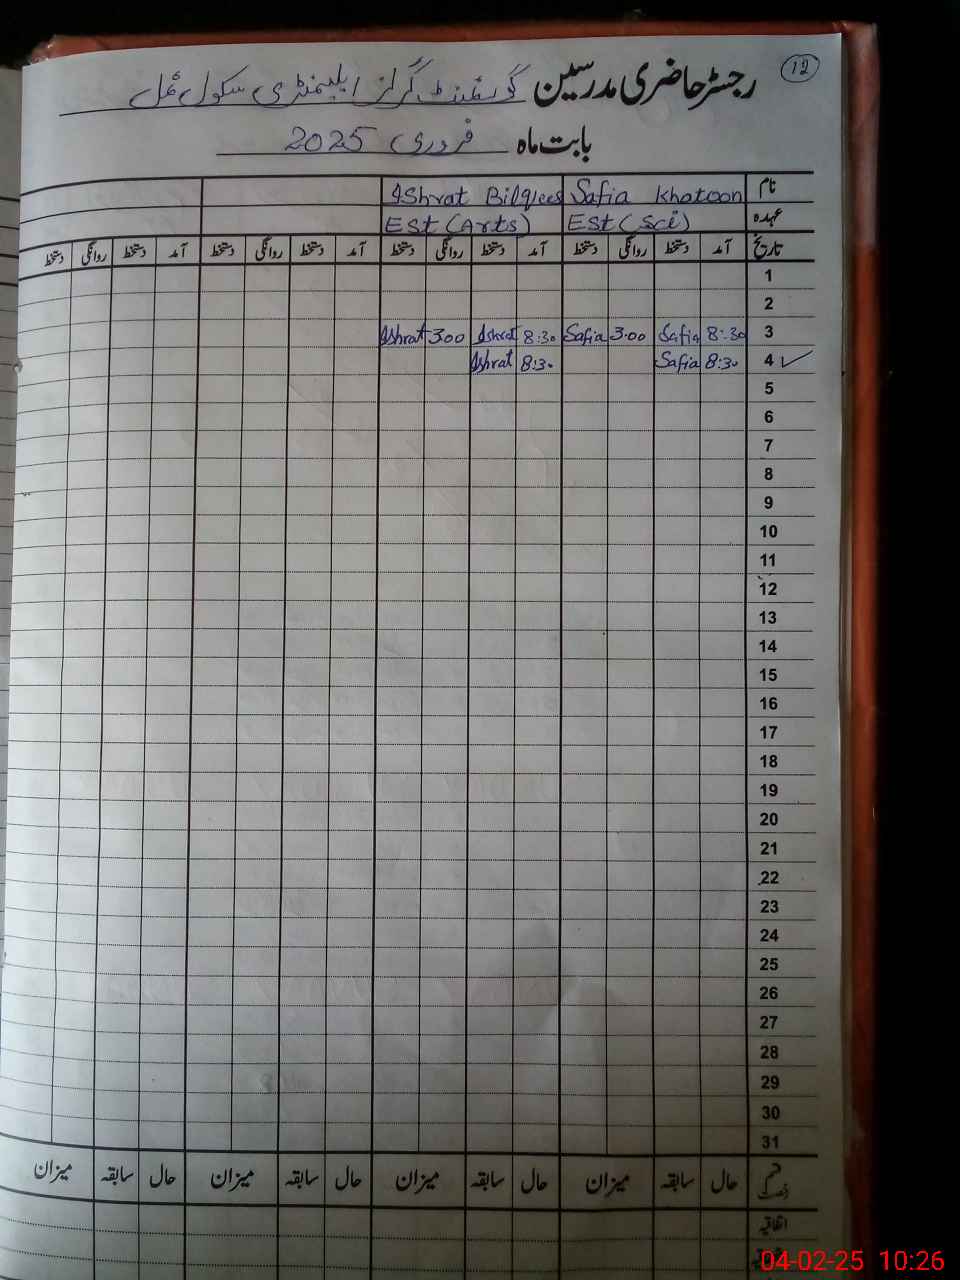 12
رجسٹر حاضری مدرسین گورنمنٹ گرلز ایلیمنٹری سکول
بابت ماہ فروری 2025
نام Safia Khatoon Ishrat Bilqees
عہدہ EST (Sci) EST (Arts)
تاریخ آمد دستخط روانگی دستخط آمد دستخط روانگی دستخط آمد دستخط روانگی دستخط آمد دستخط روانگی دستخط
1
2
3 8:30 Safia 3:00 Safia 8:30 Ishrat 3:00 Ishrat
4 ✓ 8:30 Safia 8:30 Ishrat
5
6
7
8
9
10
11
12
13
14
15
16
17
18
19
20
21
22
23
24
25
26
27
28
29
30
31
قسم رخصت حال سابقہ میزان حال سابقہ میزان حال سابقہ میزان حال سابقہ میزان
اتفاقیہ
04-02-25 10:26